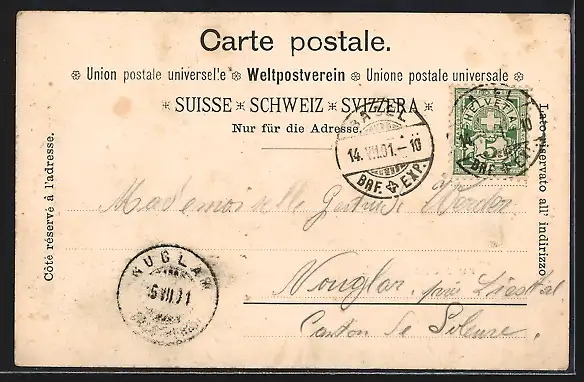 Carte postale.
Union postale universel'e Weltpostverein Unione postale universale
SUISSE * SCHWEIZ * SVIZZERA
Nur für die Adresse.
Côté réservé à l'adresse.
Lato riservato all' indirizzo
HELVETIA
5
BASEL
14.VII.01.-10
BRF. EXP.
BRF. EXP.
Mademoiselle Gertrude
Nouglar, près Liestal
Canton de Soleure.
NUGLAR
VII.01